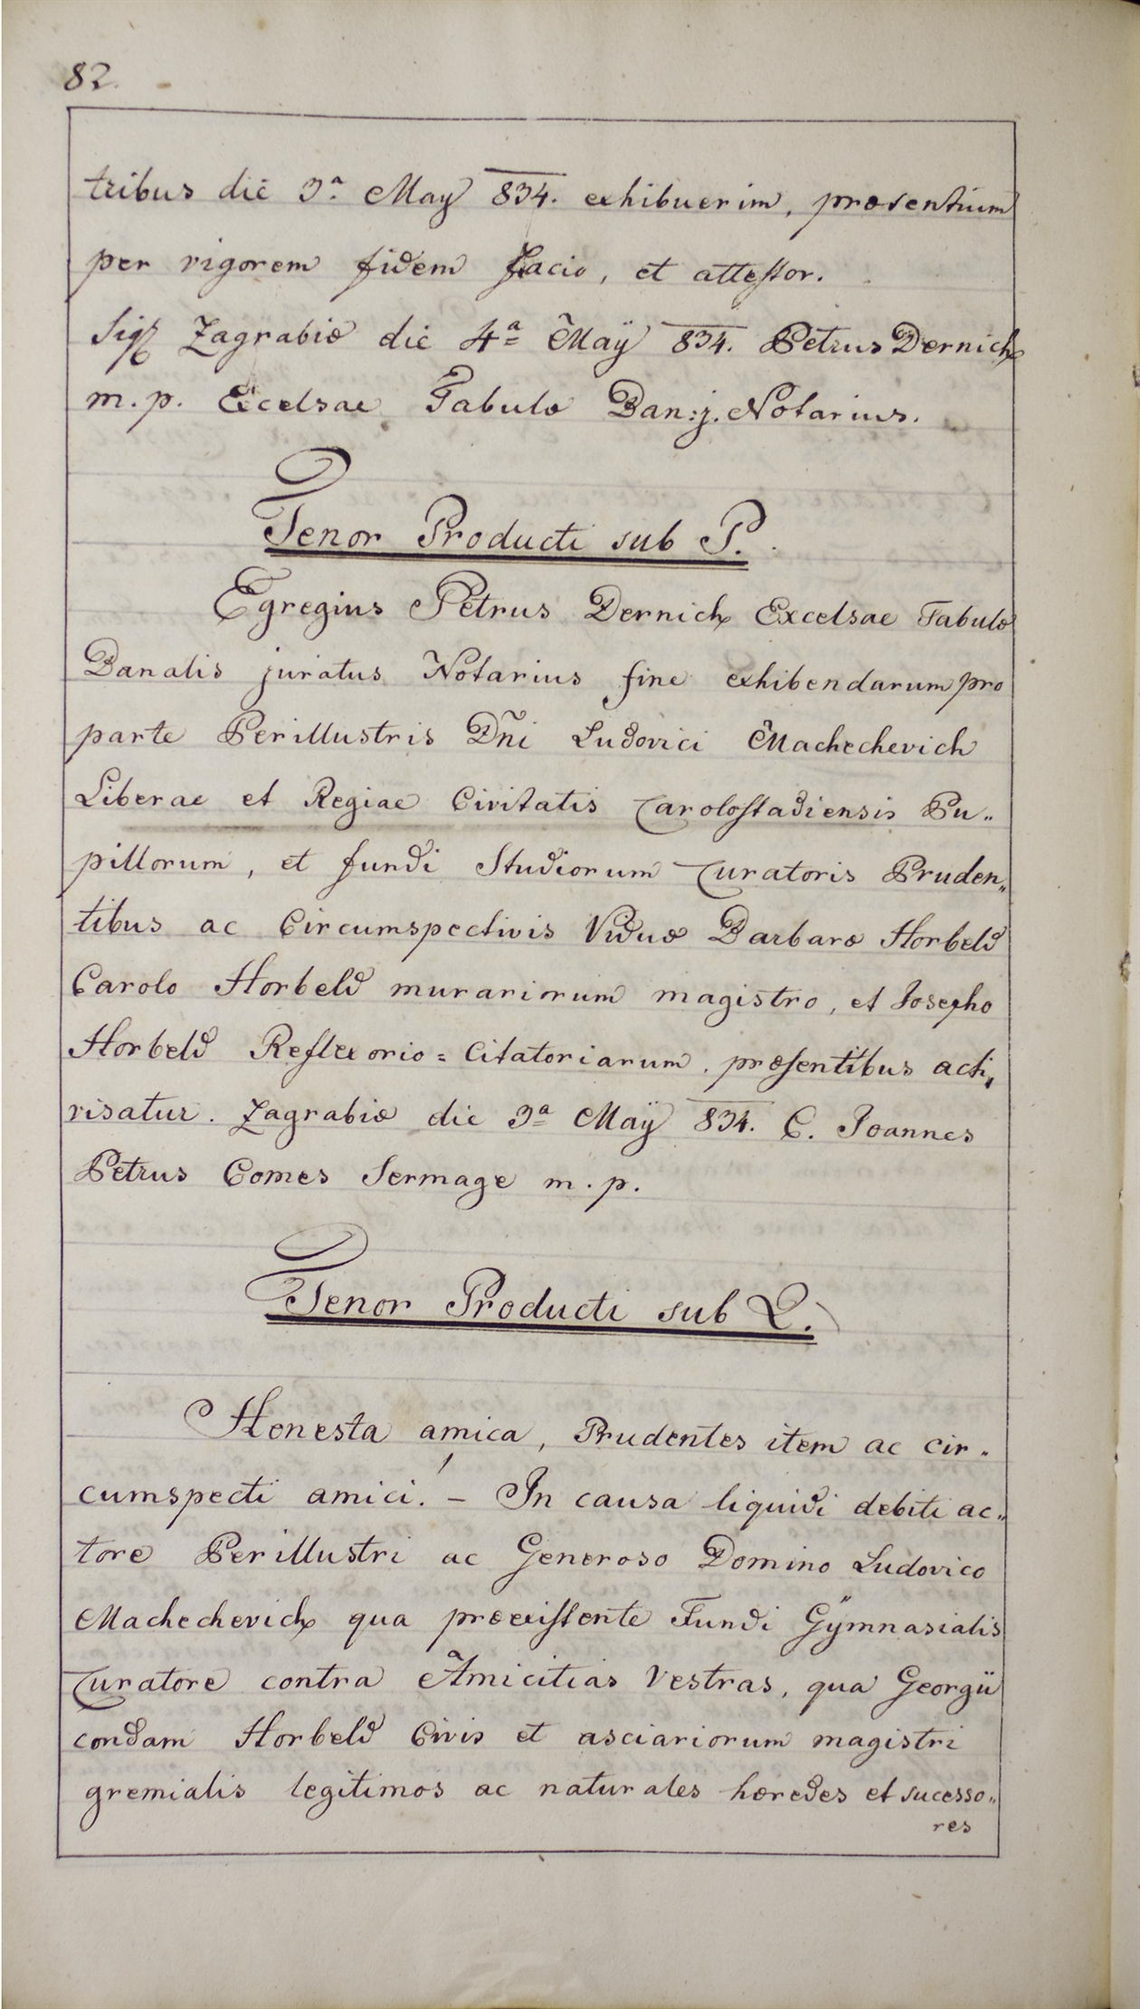 82.
tribus die 3ª May 834. exhibuerim, præsentium
per vigorem fidem facio, et attestor.
Sig. Zagrabiæ die 4ª Maÿ 834. Petrus Dernich
m. p. Excelsae Tabulæ Ban: j. Notarius.
Tenor Producti sub P.
Egregius Petrus Dernich Excelsae Tabulæ
Banalis juratus Notarius fine exhibendarum pro
parte Perillustris Dñi Ludovici Machechevich
Liberae et Regiae Civitatis Carolostadiensis Pu„
pillorum, et fundi Studiorum Curatoris Pruden„
tibus ac Circumspectivis Viduæ Barbaræ Horbeld
Carolo Horbeld murariorum magistro, et Josepho
Horbeld Reflexorio = Citatoriarum, præsentibus acti„
visatur. Zagrabiæ die 3ª Maÿ 834. C. Joannes
Petrus Comes Sermage m. p.
Tenor Producti sub Q.
Honesta amica, Prudentes item ac cir„
cumspecti amici! – In causa liquidi debiti ac„
tore Perillustri ac Generoso Domino Ludovico
Machechevich qua præexistente Fundi Gÿmnasialis
Curatore contra Amicitias Vestras, qua Georgii
condam Horbeld Civis et asciariorum magistri
gremialis legitimos ac naturales hæredes et sucesso„
res